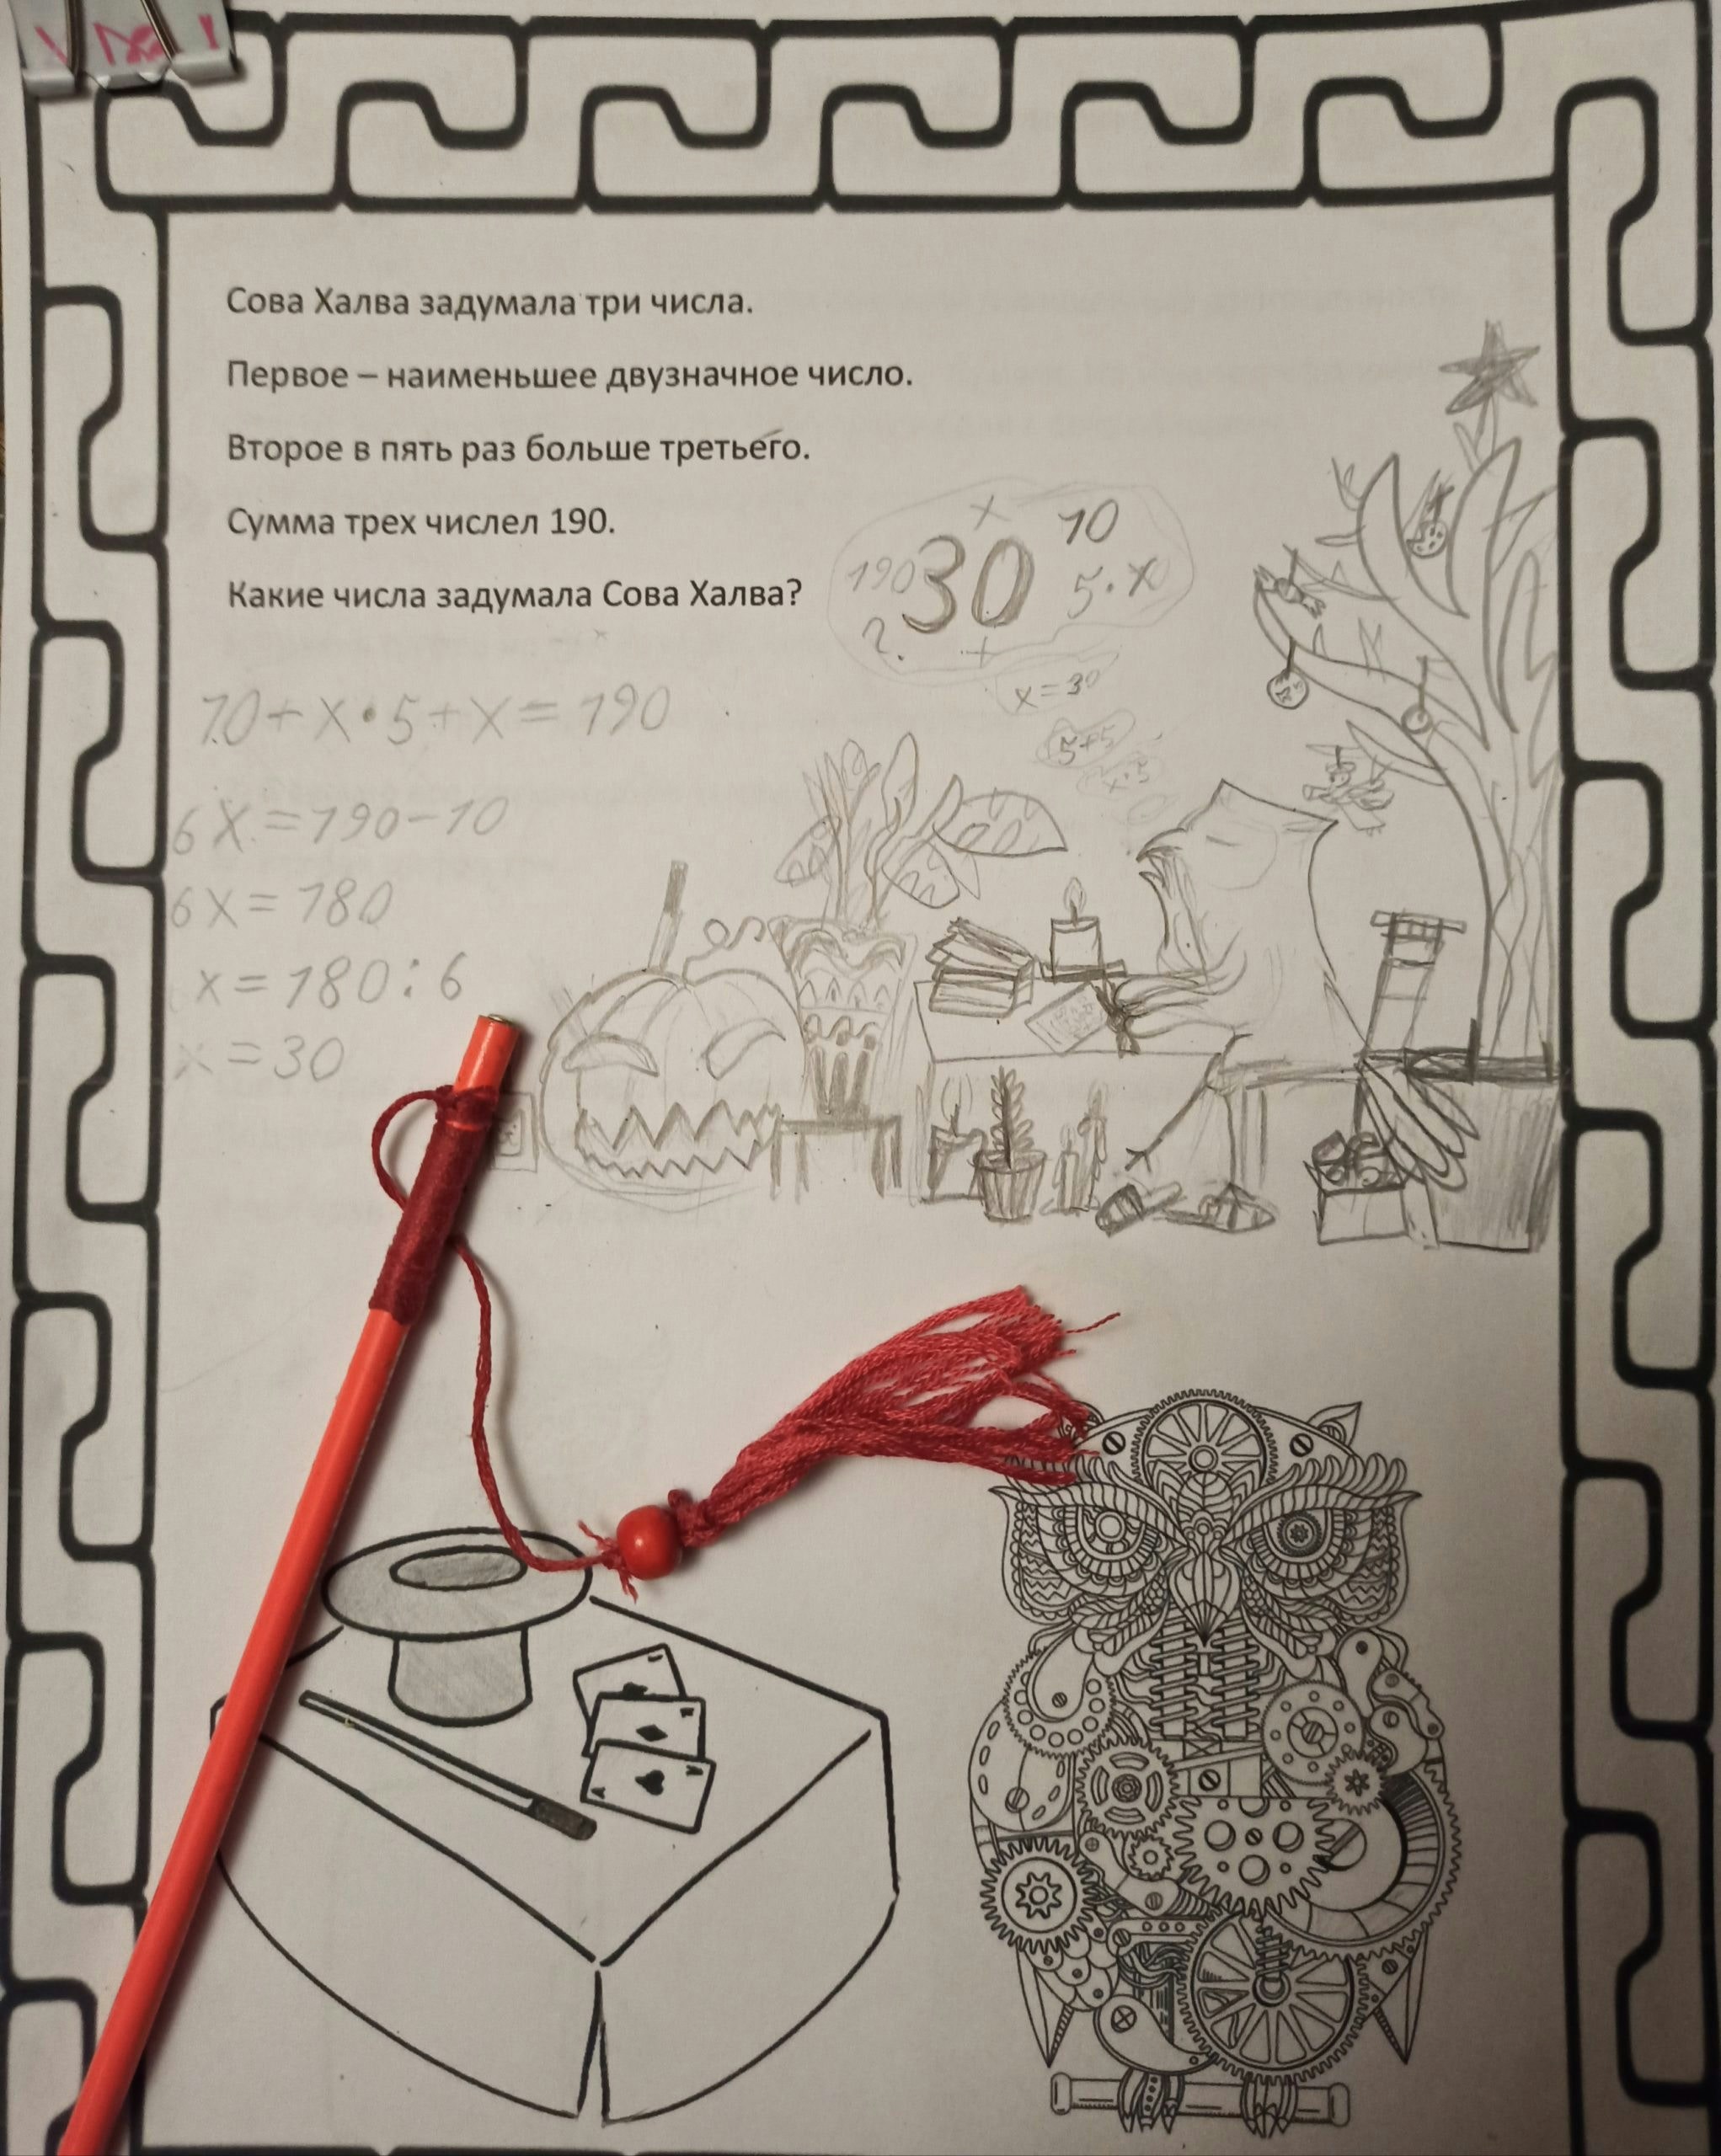 Сова Халва задумала три числа.
Первое – наименьшее двузначное число.
Второе в пять раз больше третьего.
Сумма трех числел 190.
Какие числа задумала Сова Халва?
x 10
190 30 5·x
?
+
x=30
5+5
x·5
10+x·5+x=190
6x=190-10
6x=180
x=180:6
x=30